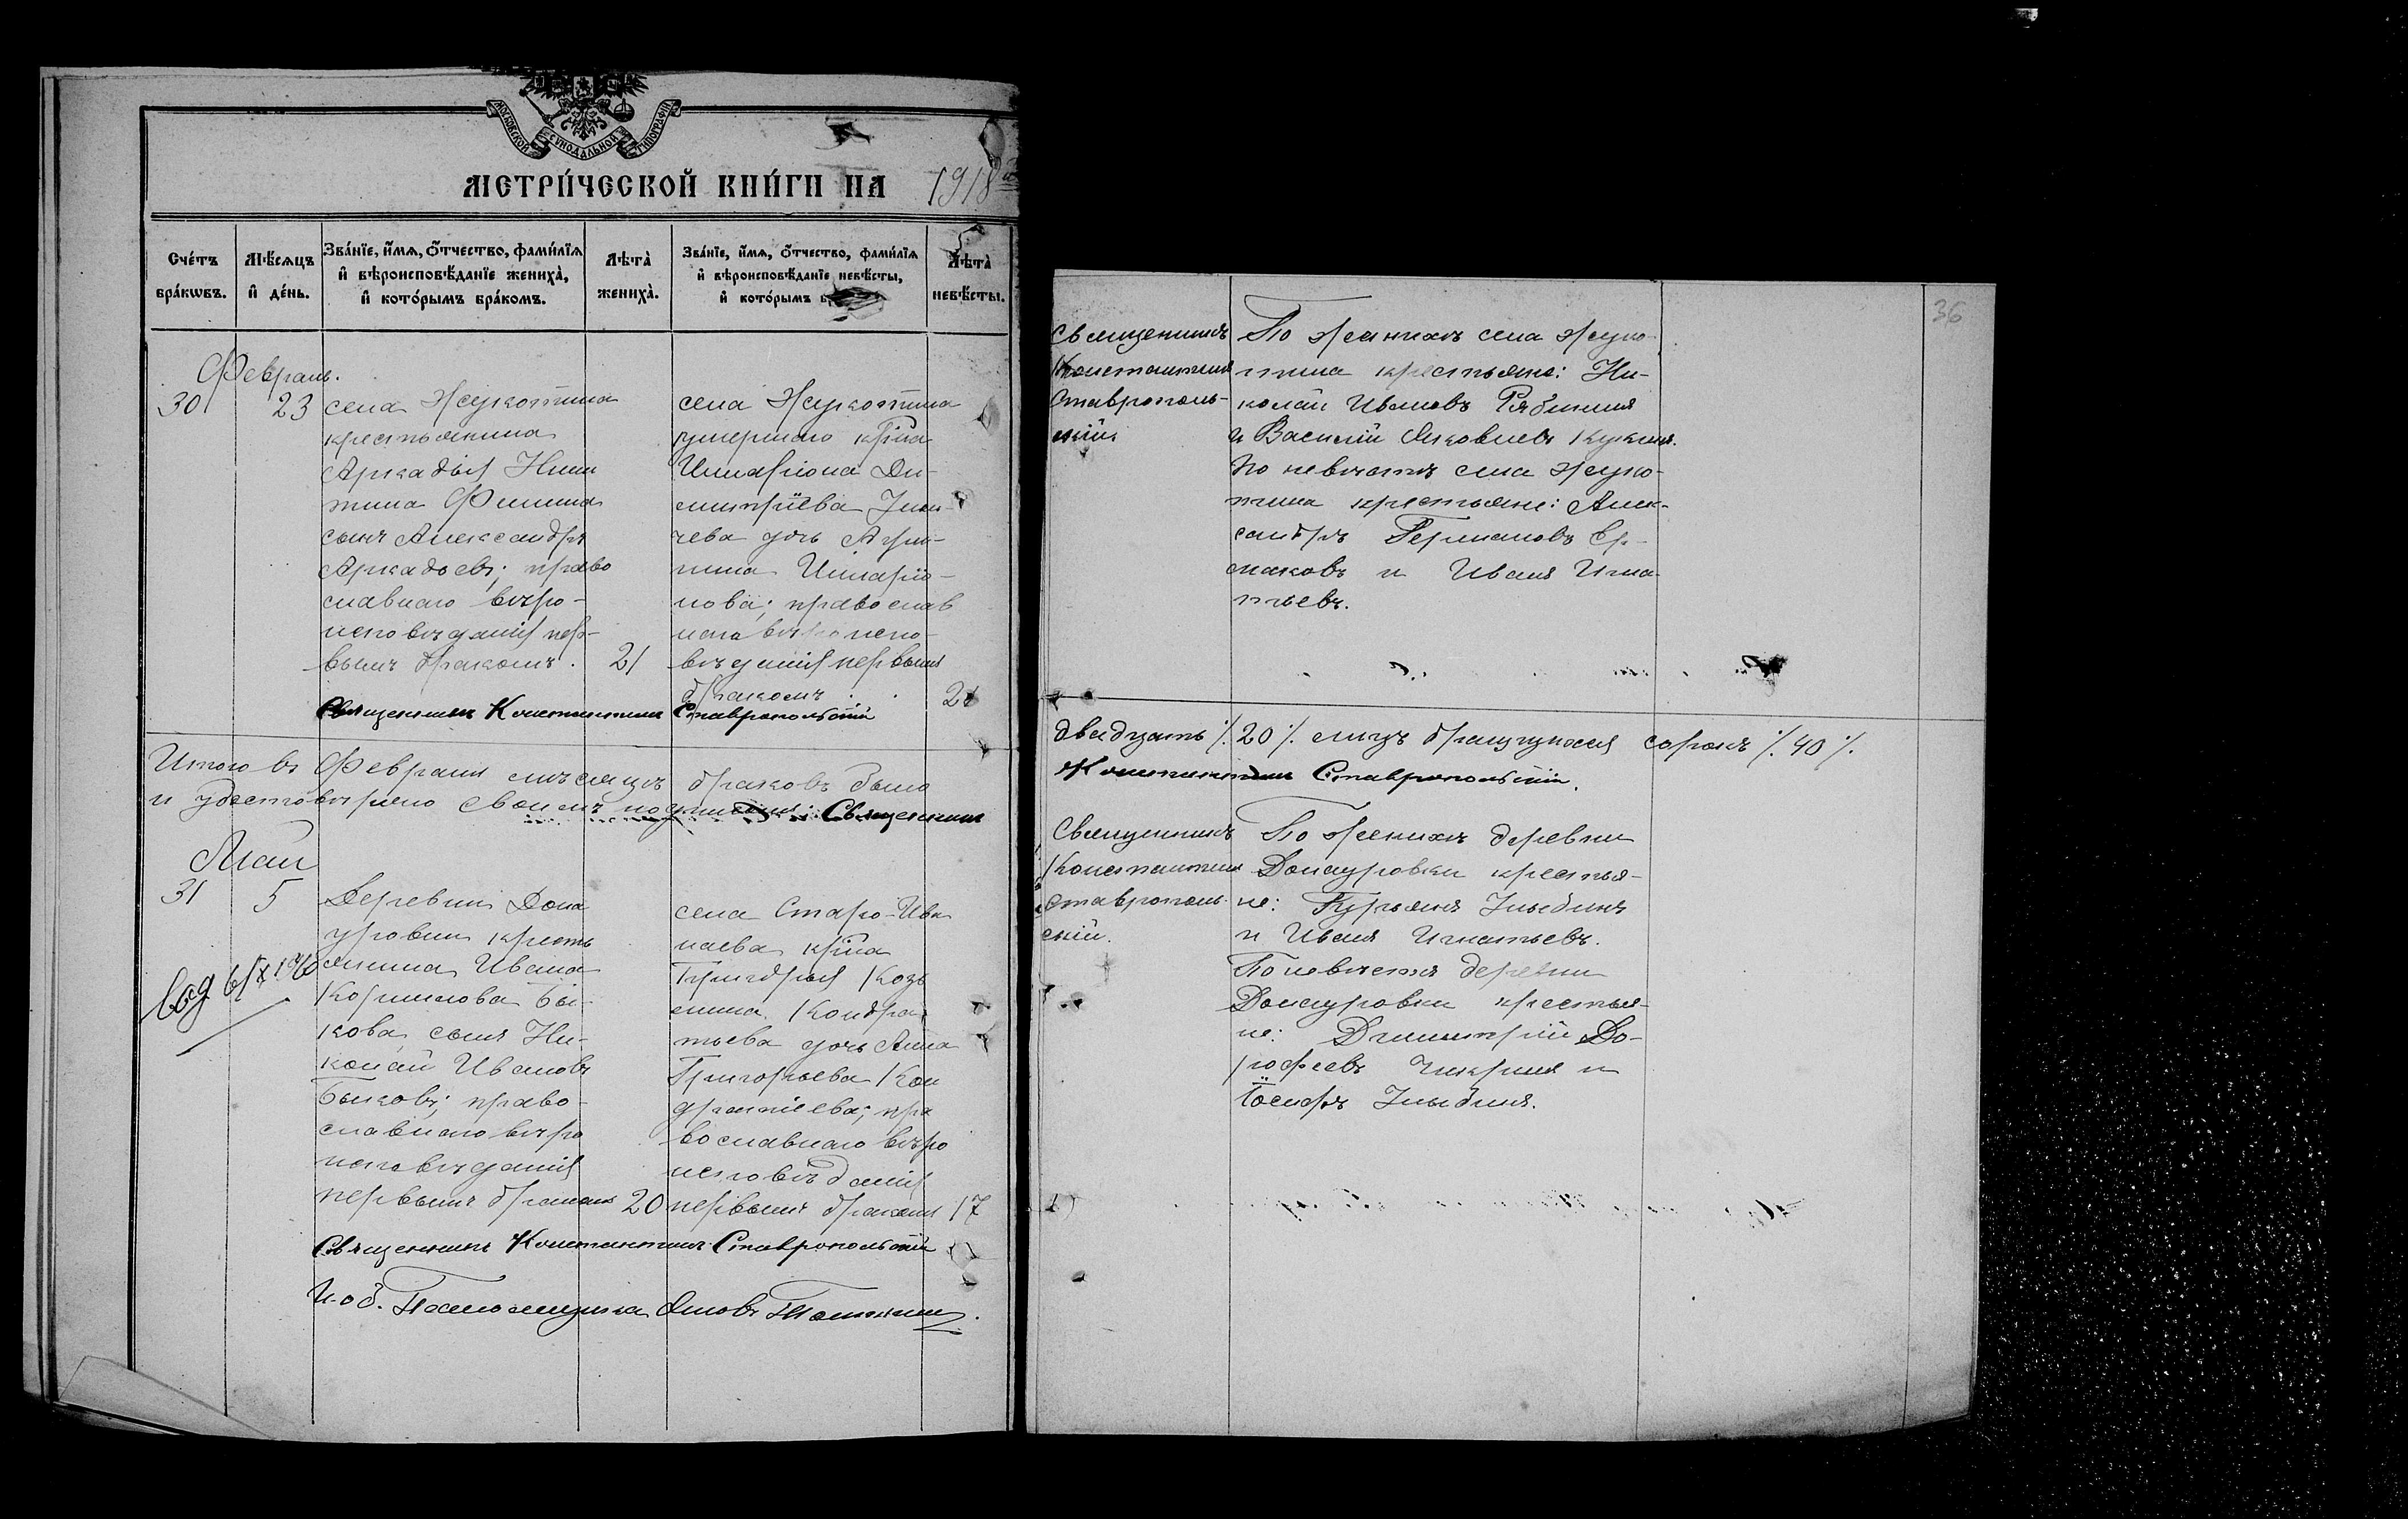 МОСКОВСКОЙ СѴНОДАЛЬНОЙ ТИПОГРАФІИ
МЕТРИ́ЧЕСКОЙ КНИ́ГИ НА 1918
Сче́тъ бра́кωвъ.
Мѣ́сѧцъ и҆ де́нь.
Зва́нїе, и҆́мѧ, ѻ҆́тчество, фами́лїѧ и҆ вѣроисповѣ́данїе жениха̀, и҆ кото́рымъ бра́комъ.
Лѣта̀ жениха̀.
Зва́нїе, и҆́мѧ, ѻ҆́тчество, фами́лїѧ и҆ вѣроисповѣ́данїе невѣ́сты, и҆ кото́рымъ
Лѣта̀ невѣ́сты.
Февраль.
30 23
села Жукотина
крестьянина
Аркадія Ники
тина Филина
сынъ Александръ
Аркадьевъ; право
славнаго вѣро-
исповѣданія пер-
вымъ бракомъ. 21
села Жукотина
умершаго кр-на
Иларіона Ди-
митріева
чева дочь
Иларіо-
нова; православ
наго вѣроиспо-
вѣданія первымъ
бракомъ. 21
Священникъ Константинъ Ставропольскій
Итого въ Февралѣ мѣсяцѣ браковъ было
и удостовѣрено своимъ подписомъ: Священникъ
Май
31 5
Деревни Дома
уровки кресть
янина Ивана
Корнилова Бы-
кова сынъ Ни-
колай Ивановъ
Быковъ; право-
славнаго вѣро
исповѣданія
первымъ бракомъ 20
села Старо-Ива
наева кр-на
Григорія Козь
мина Кондра
тьева дочь Анна
Григорьева Кон
дратьева; пра
вославнаго вѣро
исповѣданія
первымъ бракомъ 17
Священникъ Константинъ Ставропольскій
И. об. Псаломщика
36
Священникъ
Константинъ
Ставрополь-
скій
По женихѣ села Жуко-
тина крестьяне: Ни-
колай Ивановъ Рябининъ
и Василій Яковлевъ Кукинъ.
По невѣстѣ села Жуко-
тина крестьяне: Алек-
сандръ Германовъ Ер-
маковъ и Иванъ Игна-
тьевъ.
двадцать /. 20 /. лицъ брачущихся сорокъ /. 40 /.
Константинъ Ставропольскій.
Священникъ
Константинъ
Ставрополь-
скій.
По женихѣ деревни
Домауровки крестья-
не: Гурьянъ Улыбинъ
и Иванъ Игнатьевъ.
По невѣстѣ деревни
Домауровки крестья-
не: Димитрій До-
рофеевъ Чикринъ и
Іосифъ Улыбинъ.